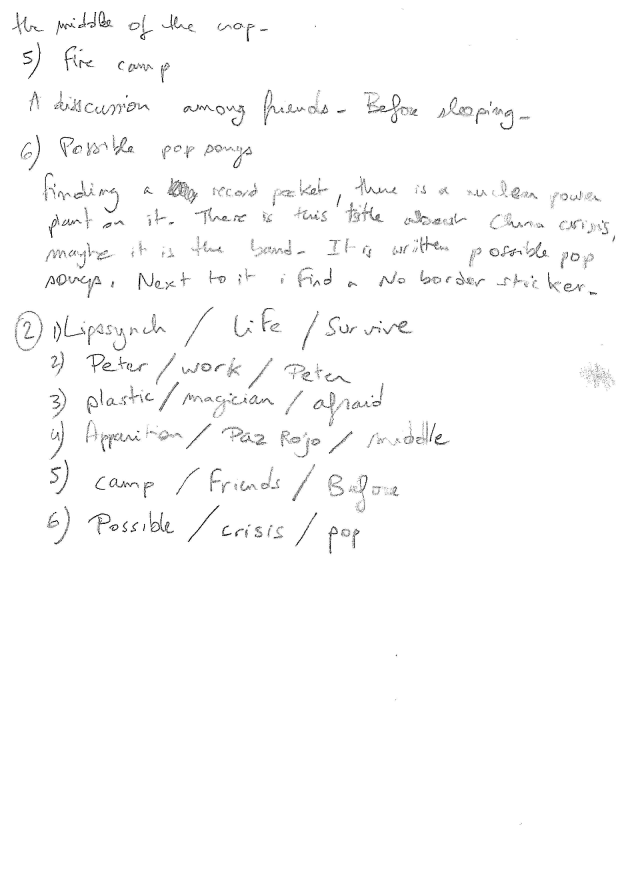 the middle of the map-
5) Fire camp
A disscussion among friends - Before sleeping -
6) Possible pop songs
finding a record pocket, there is a nuclear power
plant on it. There is this title about China crisis,
maybe it is the band - It is written possible pop
songs. Next to it i find a No border sticker -
② 1) Lipssynch / Life / Survive
2) Peter / work / Peter
3) plastic / magician / afraid
4) Apparition / Paz Rojo / middle
5) camp / Friends / Before
6) Possible / crisis / pop